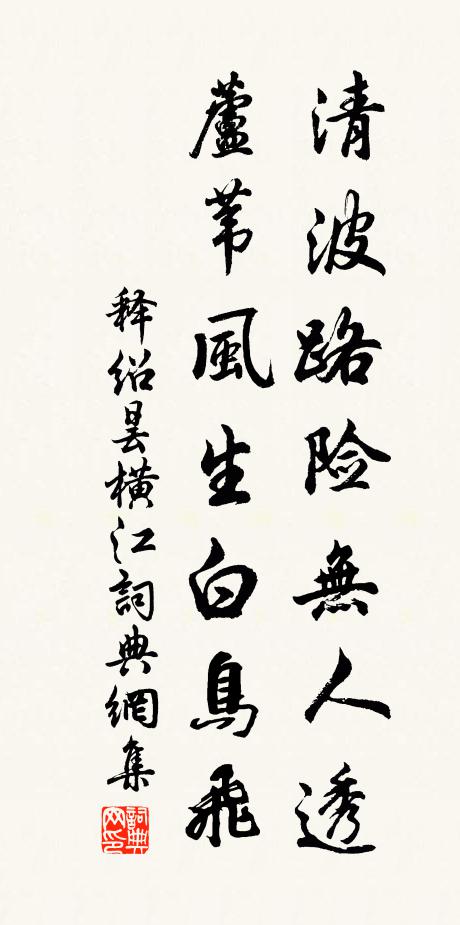 清波路险無人透
蘆苇風生白鳥飛
释绍昙橫江詞典網集
詞典
网印